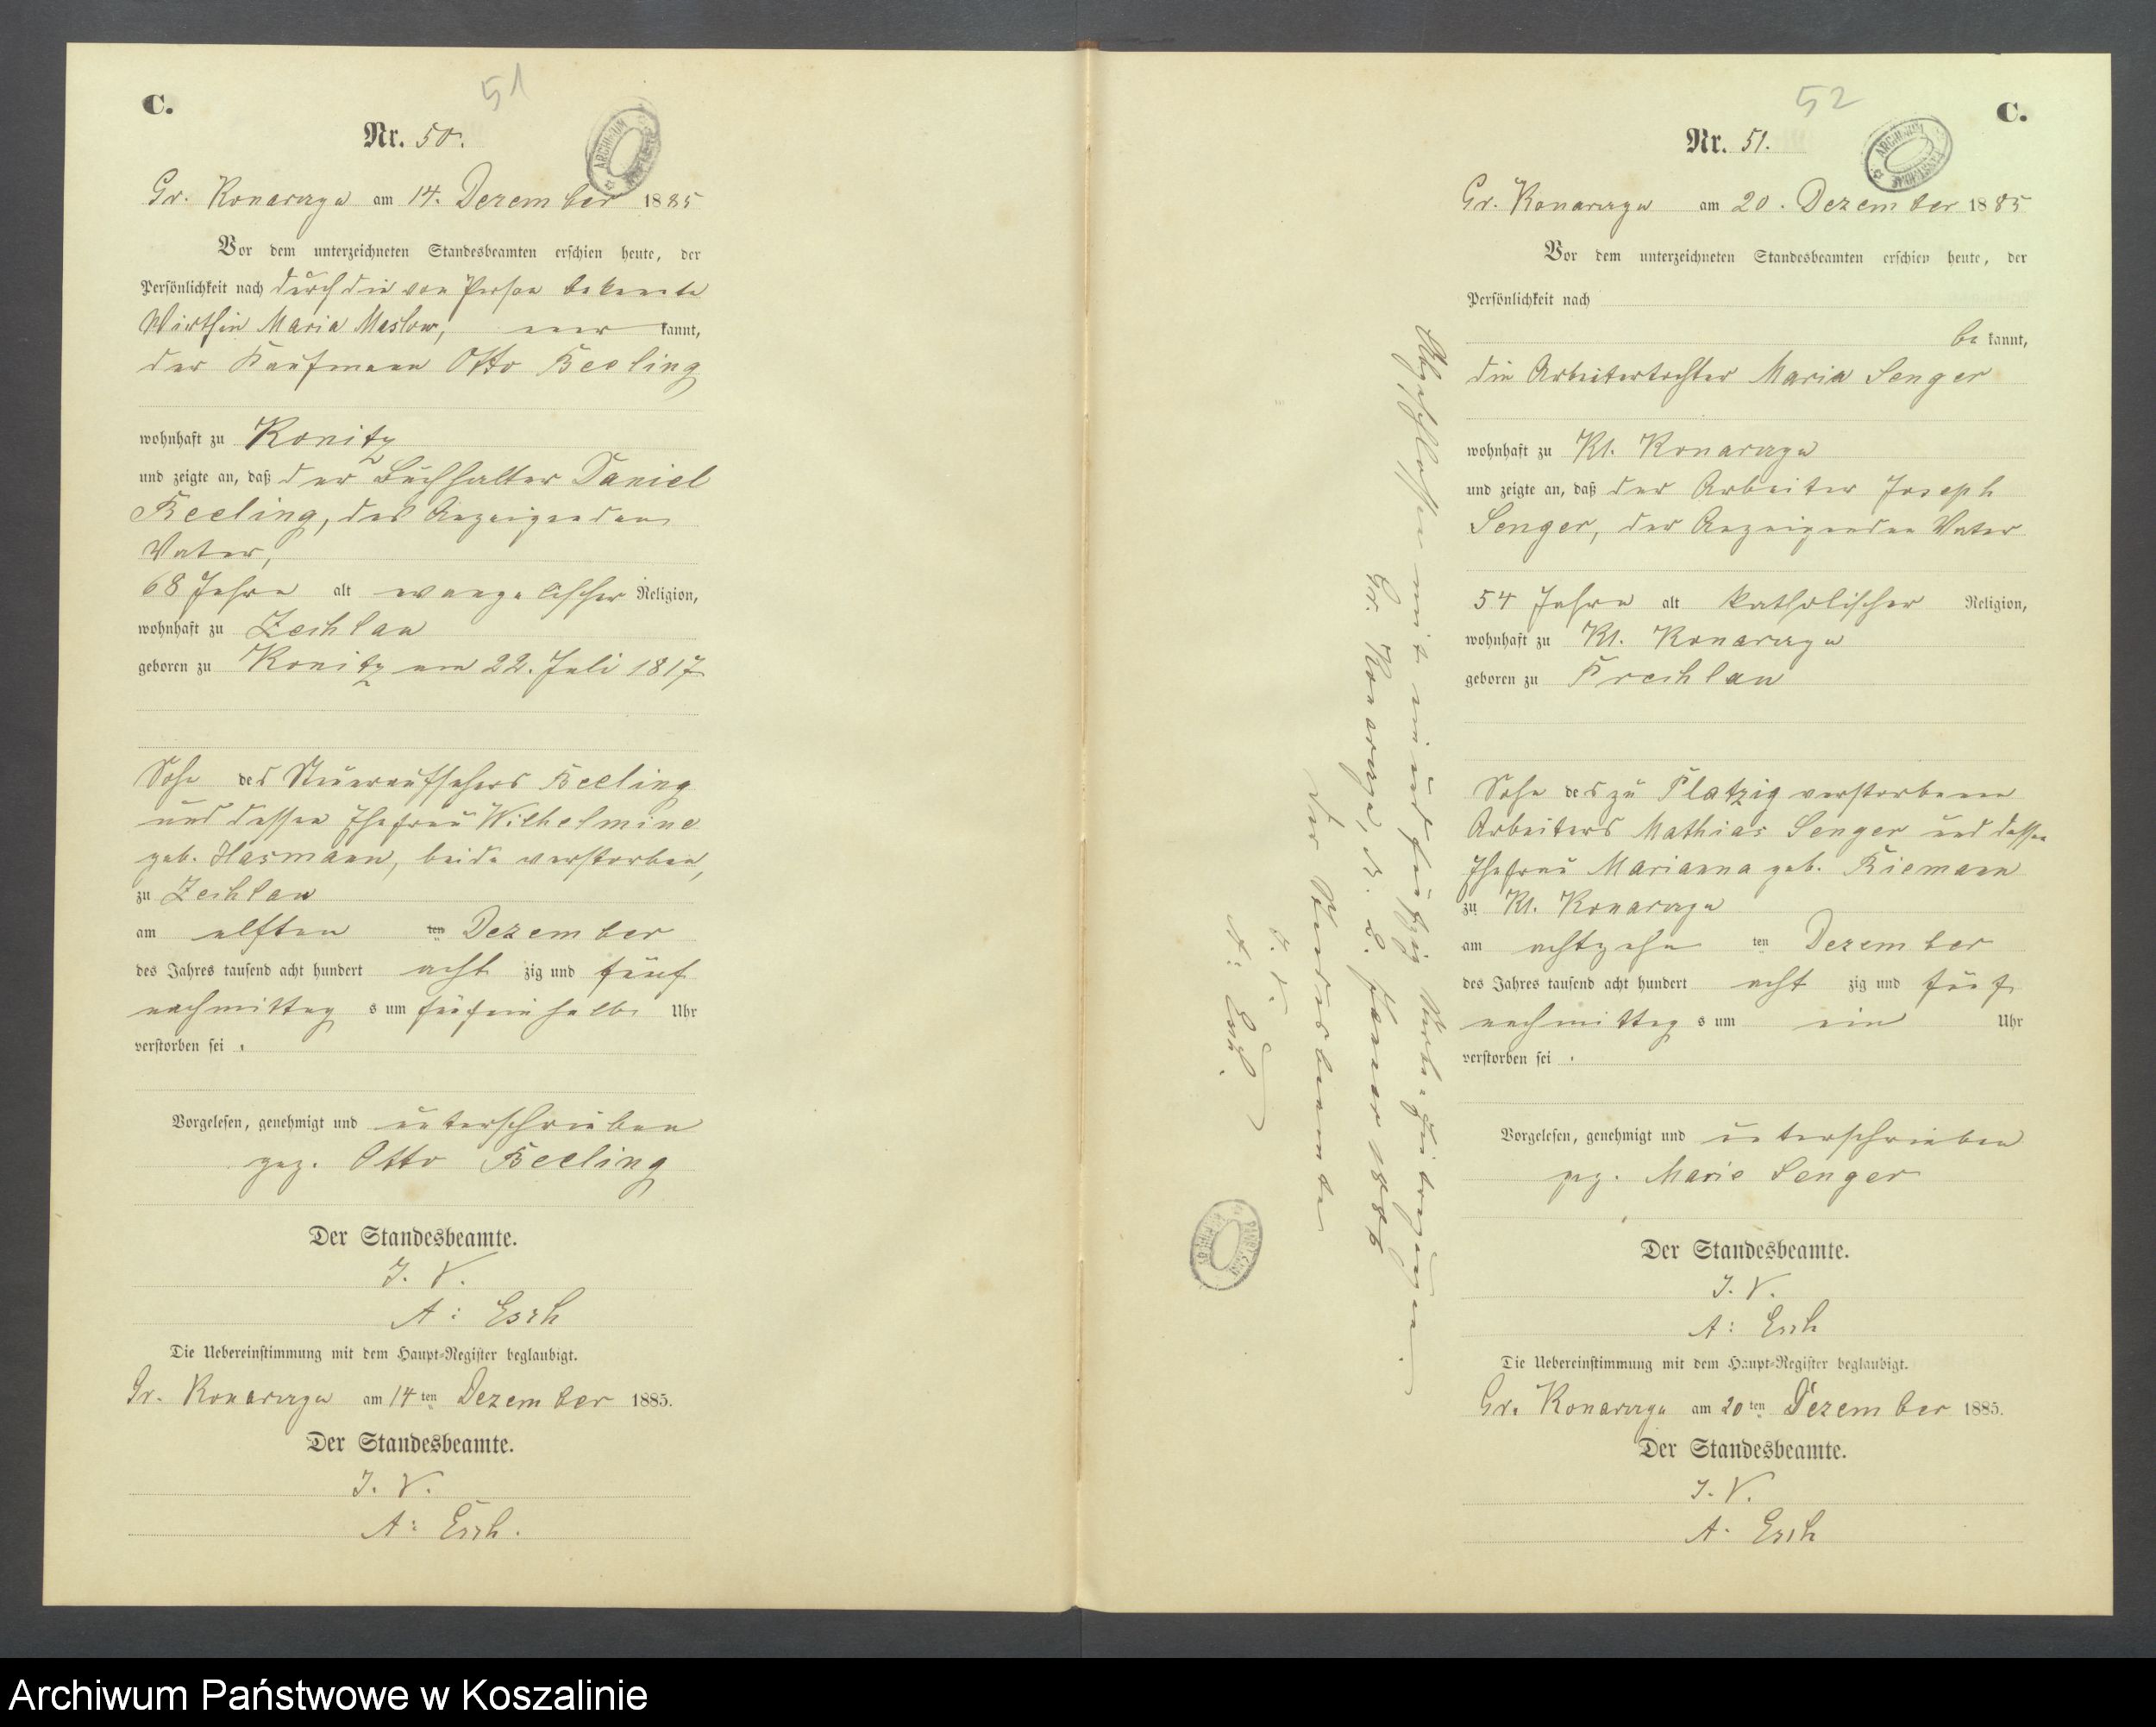 C.
51
Nr. 50.
Gr. Konarzyn am 14. Dezember 1885
Vor dem unterzeichneten Standesbeamten erschien heute, der
Persönlichkeit nach durch die von Person bekannte
Wirthin Maria Maslow, aner kannt,
der Kaufmann Otto Beeling
wohnhaft zu Konitz
und zeigte an, daß der Buchhalter Daniel
Beeling, des Anzeigenden
Vater,
68 Jahre alt evangelischer Religion,
wohnhaft zu Zechlau
geboren zu Konitz am 22. Juli 1817
Sohn des Steueraufsehers Beeling
und dessen Ehefrau Wilhelmine
geb. Hasmann, beide verstorben,
zu Zechlau
am elften ten Dezember
des Jahres tausend acht hundert acht zig und fünf
nachmittag s um fünfeinhalb Uhr
verstorben sei .
Vorgelesen, genehmigt und unterschrieben
gez. Otto Beeling
Der Standesbeamte.
J. V.
A: Esch
Die Uebereinstimmung mit dem Haupt-Register beglaubigt.
Gr. Konarzyn am 14 ten Dezember 1885.
Der Standesbeamte.
J. V.
A: Esch.
52
C.
Nr. 51.
Gr. Konarzyn am 20. Dezember 1885
Vor dem unterzeichneten Standesbeamten erschien heute, der
Persönlichkeit nach
be kannt,
die Arbeitertochter Maria Senger
wohnhaft zu Kl. Konarzyn
und zeigte an, daß der Arbeiter Joseph
Senger, der Anzeigenden Vater
54 Jahre alt katholischer Religion,
wohnhaft zu Kl. Konarzyn
geboren zu Prechlau
Sohn des zu Platzig verstorbenen
Arbeiters Mathias Senger und dessen
Ehefrau Marianna geb. Riemann
zu Kl. Konarzyn
am achtzehn ten Dezember
des Jahres tausend acht hundert acht zig und fünf
nachmittag s um ein Uhr
verstorben sei .
Vorgelesen, genehmigt und unterschrieben
gez. Marie Senger
Der Standesbeamte.
J. V.
A: Esch
Die Uebereinstimmung mit dem Haupt-Register beglaubigt.
Gr. Konarzyn am 20 ten Dezember 1885.
Der Standesbeamte.
J. V.
A. Esch
Abgeschlossen mit einundfünfzig Eintragungen.
Gr. Konarzyn, d. 2. Januar 1886
Der Standesbeamte
J. V.
A: Esch.
Archiwum Państwowe w Koszalinie